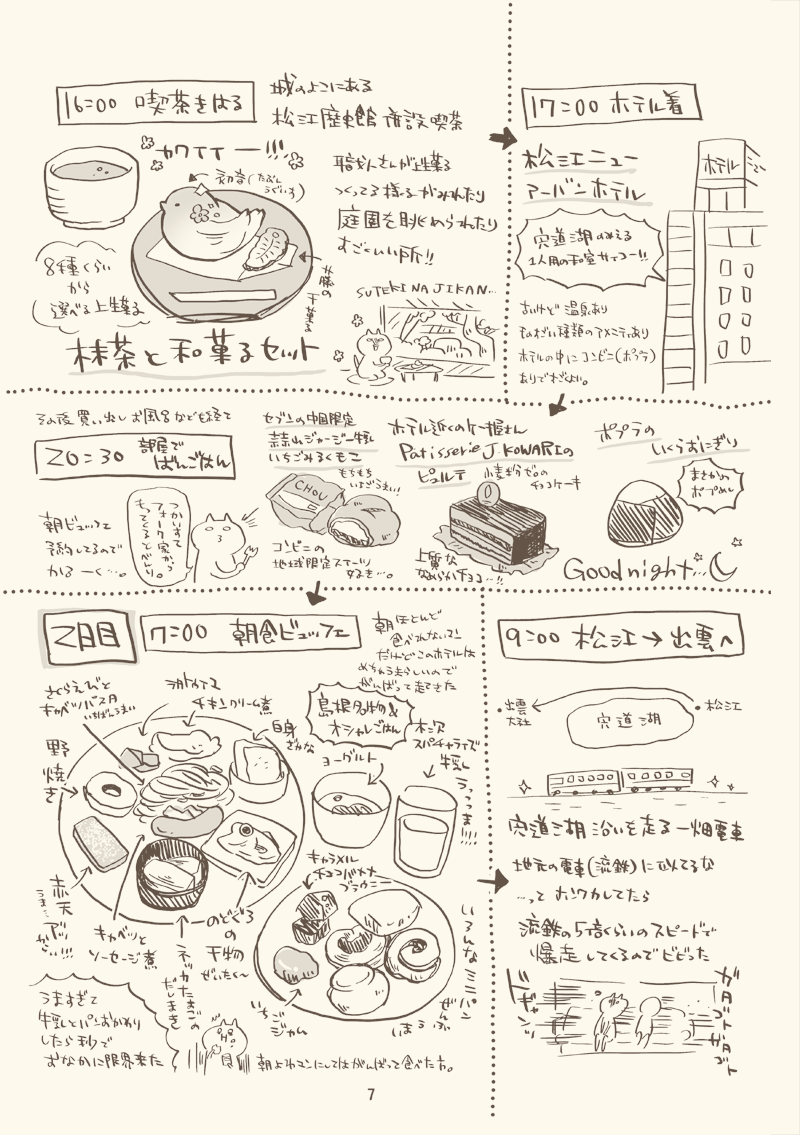 16:00 喫茶きはる
城のよこにある
松江歴史館併設喫茶
カワイイー!!!
初音(たぶんうぐいす)
職人さんが上生菓子
つくってる様子がみれたり
庭園を眺められたり
すごーいい所!!
8種くらい
から
選べる上生菓子
の干菓子
SUTEKI NA JIKAN…
抹茶と和菓子セット
17:00 ホテル着
松江ニュー
アーバンホテル
ホテル
宍道湖のみえる
1人用の和室サイコー!!
古いけど温泉あり
ものすごい種類のアメニティあり
ホテルの中にコンビニ(ポプラ)
ありですごい。
その後買い出しお風呂なども経て
20:30 部屋で
ばんごはん
朝ビュッフェ
予約してるので
かるーく…。
つかいすて
フォーク家から
もってくるとべんり。
セブンの中国限定
蒜山ジャージー牛乳
いちごみるくもこ
もちもち
いちごうまい!
CHOU
コンビニの
地域限定スイーツ
すき…。
ホテル近くのケーキ屋さん
Patisserie J.KOWARIの
ピュルテ
小麦粉ゼロの
チョコケーキ
上質な
なめらかチョコ…!!
ポプラの
いくらおにぎり
まさかの
ポプめし
Good night…
2日目
7:00 朝食ビュッフェ
朝ほとんど
食べれないマン
だけどこのホテルは
めちゃうまらしいので
がんばって起きた
島根名物&
オシャレごはん
さくらえびと
キャベツパスタ
いちばんうまい
チキンクリーム煮
白身
ざかな
野焼き
赤天
うま…
キャベツと
ソーセージ煮
のどぐろ
の
干物
ぜいたく〜
だしまき
ヨーグルト
木次
パスチャライズ
牛乳
うっっっま!!!!
キャラメル
チョコバナナ
ブラウニー
いちご
ジャム
いろんなミニパン
ぜんぶ
うますぎて
牛乳とパンおかわり
したら秒で
おなかに限界来た
朝よわマンにしてはがんばって食べた方。
9:00 松江→出雲へ
出雲
大社
宍道湖
松江
宍道湖沿いを走る一畑電車
地元の電車(流鉄)に似てるな
…って ホンワカしてたら
流鉄の5倍くらいのスピードで
爆走してくるのでビビった
ドギャンッ
ガタゴトガタゴト
7